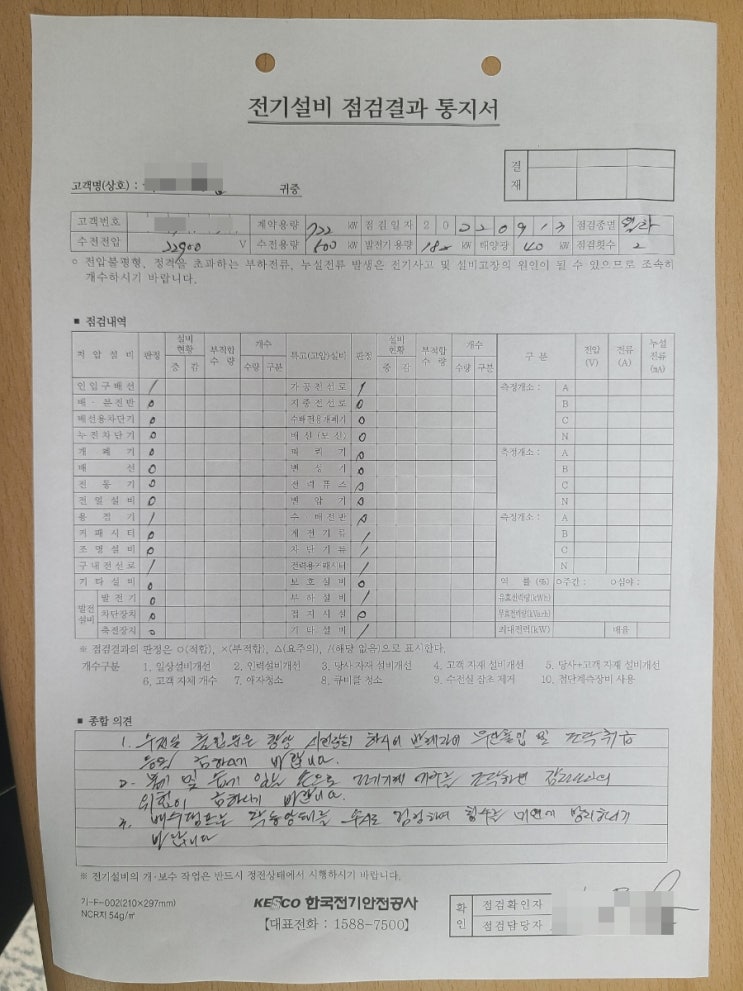 전기설비 점검결과 통지서
결재
고객명(상호) : 귀중
고객번호 계약용량 722 kW 점검일자 20220913 점검종별
수전전압 22900 V 수전용량 600 kW 발전기용량 kW 태양광 40 kW 점검횟수 2
○ 전압불평형, 정격을 초과하는 부하전류, 누설전류 발생은 전기사고 및 설비고장의 원인이 될 수 있으므로 조속히
개수하시기 바랍니다.
■ 점검내역
저압설비 판정 설비현황 부적합수량 개수 특고(고압)설비 판정 설비현황 부적합수량 개수 구분 전압(V) 전류(A) 누설전류(mA)
증 감 수량 구분 증 감 수량 구분
인입구배선 / 가공전선로 / 측정개소 : A
배·분전반 0 지중전선로 0 B
배선용차단기 0 수배전용개폐기 0 C
누전차단기 0 배선(모선) 0 N
개폐기 0 피뢰기 0 측정개소 : A
배선 0 변성기 0 B
전동기 0 전력퓨즈 0 C
전열설비 0 변압기 0 N
용접기 / 수·배전반 0 측정개소 : A
커패시터 0 계전기류 / B
조명설비 0 차단기류 / C
구내전선로 / 전력용커패시터 / N
기타설비 0 보호설비 0 역률(%) ○주간 : ○심야 :
발전설비 발전기 0 부하설비 / 유효전력량(kWh)
차단장치 0 접지시설 0 무효전력량(kVarh)
축전장치 0 기타설비 / 최대전력(kW) 배율
※ 점검결과의 판정은 ○(적합), ×(부적합), △(요주의), /(해당 없음)으로 표시한다.
개수구분 1. 일상설비개선 2. 인력설비개선 3. 당사 자재 설비개선 4. 고객 자재 설비개선 5. 당사+고객 자재 설비개선
6. 고객 자체 개수 7. 애자청소 8. 큐비클 청소 9. 수전실 잡초 제거 10. 첨단계측장비 사용
■ 종합 의견
1. 수전실 출입문은 항상 하시어 및 조작취급
등을 금하시기 바랍니다.
2. 물기 및 습기 있는 손으로 전기기계 기구를 조작하면 감전사고의
위험이 바랍니다.
3. 배수펌프는 작동상태를 수시로 점검하여 침수를 미연에 방지하시기
바랍니다
※ 전기설비의 개·보수 작업은 반드시 정전상태에서 시행하시기 바랍니다.
기-F-002(210×297mm)
NCR지 54g/㎡
KESCO 한국전기안전공사
【대표전화 : 1588-7500】
확인 점검확인자
점검담당자